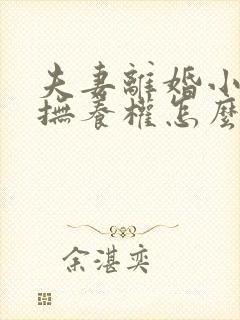 夫妻離婚小
撫養權怎麼
余湛奕